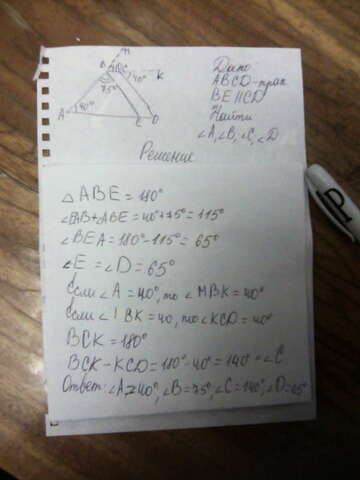 M
B C 40° K
75°
A 40° E D
Дано
ABCD-трап.
BE||CD
Найти
∠A,∠B,∠C,∠D
Решение
△ ABE = 180°
∠EAB+ABE=40°+75°=115°
∠BEA=180°-115°=65°
∠E=∠D=65°
Если ∠A=40°, то ∠MBK=40°
Если ∠ BK=40, то ∠KCD=40°
BCK=180°
BCK-KCD=180°-40°=140°=∠C
Ответ: ∠A=40°, ∠B=75°, ∠C=140°, ∠D=65°
P